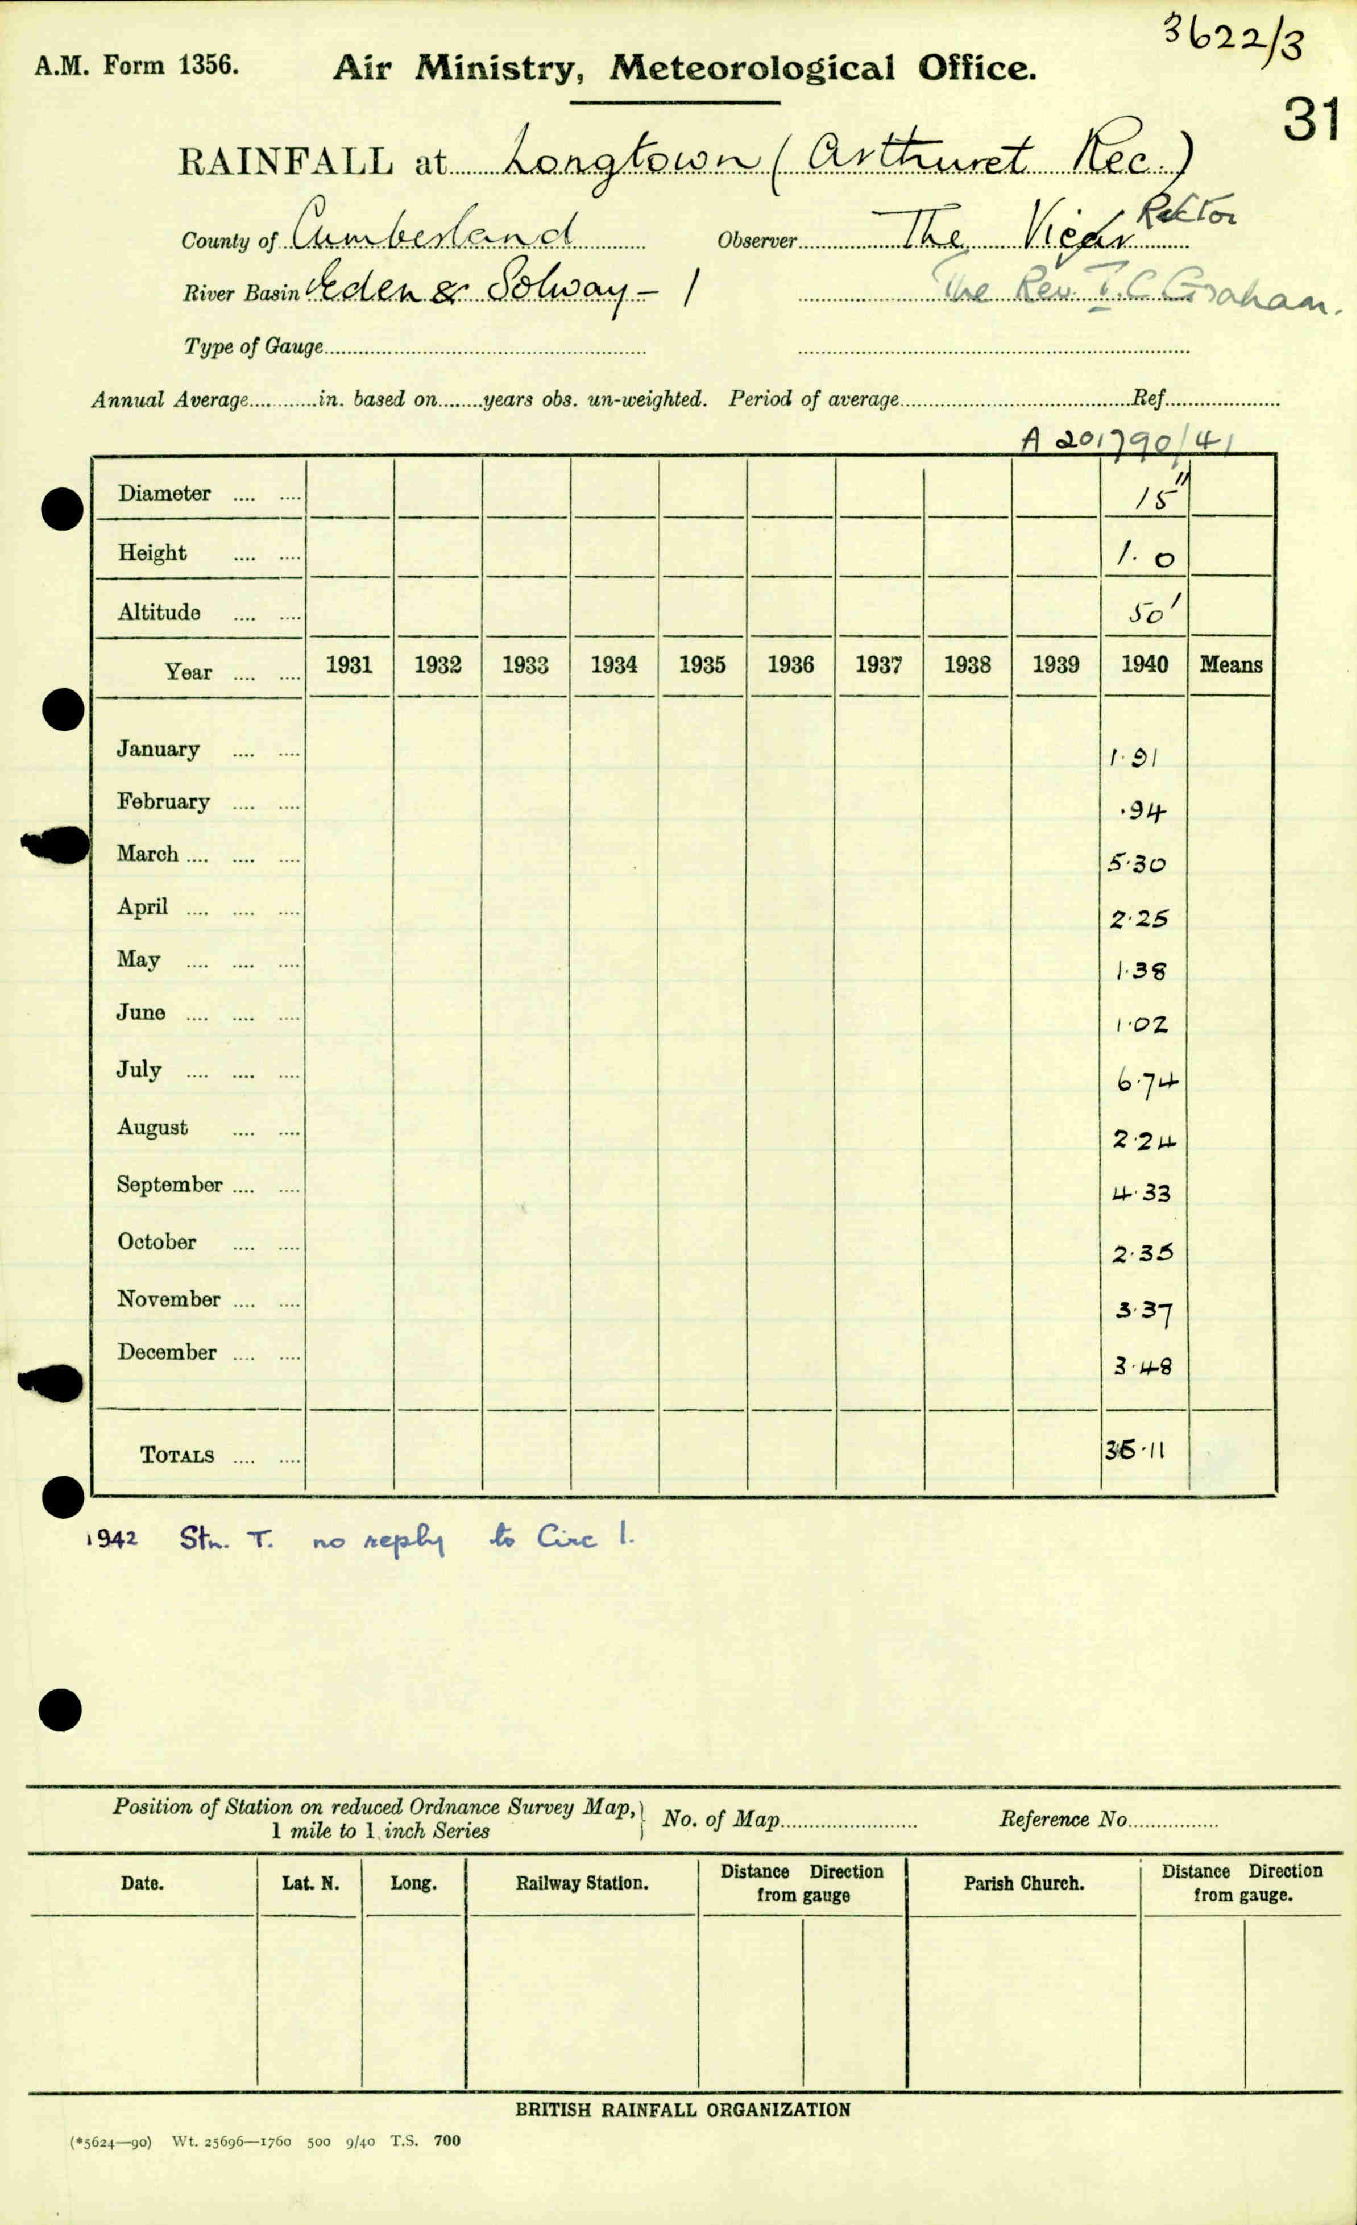 3622/3
A.M. Form 1356.
Air Ministry, Meteorological Office.
31
RAINFALL at Longtown (Arthuret Rec.)
County of Cumberland Observer The Vicar Rector
River Basin Eden & Solway – 1 The Rev. T. C Graham.
Type of Gauge
Annual Average in. based on years obs. un-weighted. Period of average Ref.
A 201790/41
Diameter 15"
Height 1. 0
Altitude 50'
Year 1931 1932 1933 1934 1935 1936 1937 1938 1939 1940 Means
January 1·91
February ·94
March 5·30
April 2·25
May 1·38
June 1·02
July 6·74
August 2·24
September 4·33
October 2·35
November 3·37
December 3·48
TOTALS 35·11
1942 Stn. T. no reply to Circ 1.
Position of Station on reduced Ordnance Survey Map,
1 mile to 1 inch Series
No. of Map Reference No.
Date. Lat. N. Long. Railway Station. Distance Direction from gauge Parish Church. Distance Direction from gauge.
BRITISH RAINFALL ORGANIZATION
(*5624—90) Wt. 25696—1760 500 9/40 T.S. 700